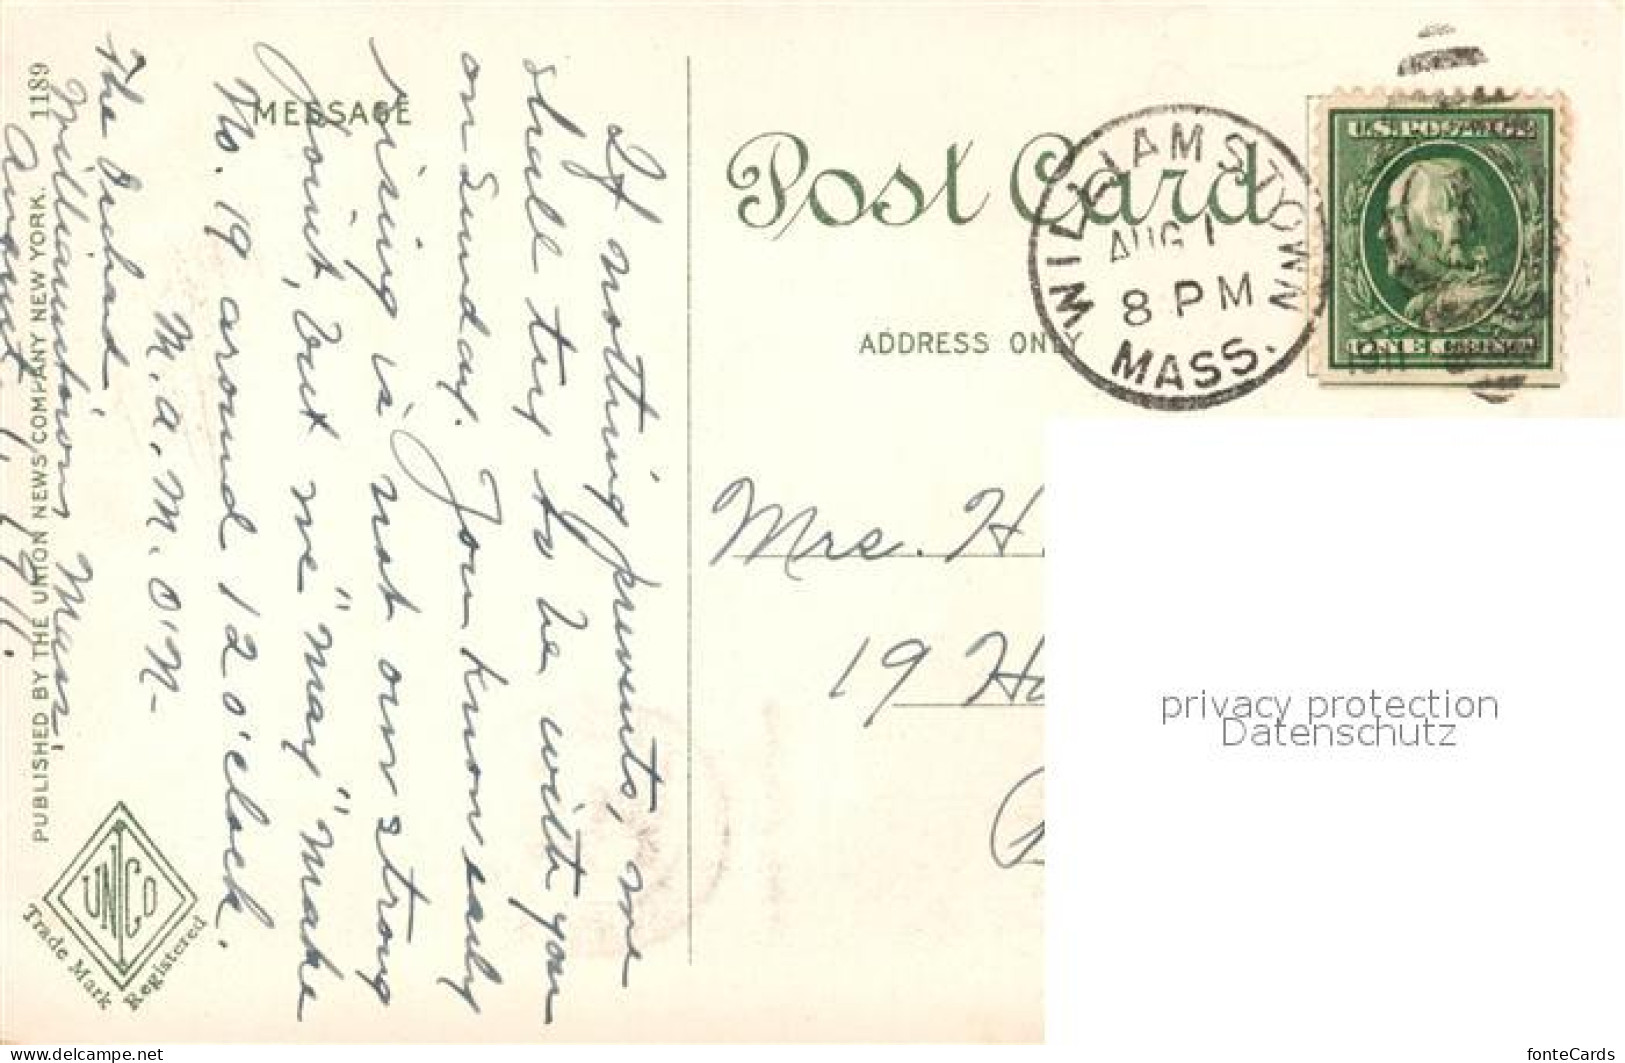 If nothing prevents, we
shall try to be with you
on Sunday. You know early
rising is not our strong
point, but we "may" make
No. 19 around 12 o'clock.
M. A. M. O'N-
The Orchard
Williamstown Mass.,
August
MESSAGE
1189
PUBLISHED BY THE UNION NEWS COMPANY NEW YORK.
UNCO
Trade Mark Registered
Post Card
ADDRESS ONLY
WILLIAMSTOWN
AUG 1
8 PM
MASS.
1911
U.S. POSTAGE
Mrs. H.
19 H
privacy protection
Datenschutz
https://www.delcampe.net
fonteCards